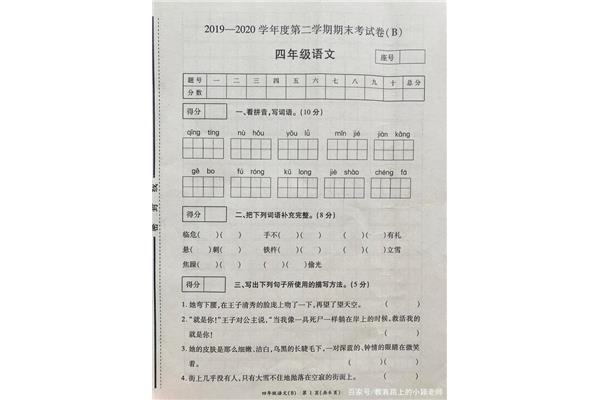 2019—2020 学年度第二学期期末考试卷(B)
四年级语文
座号
题号 一 二 三 四 五 六 七 八 九 十 总分
分数
得分 一、看拼音,写词语。(10分)
qīng tíng nù hǒu yōu lǜ mǐn jié jiàn kāng
gē bo fú róng kū long jiè shào chéng fá
得分 二、把下列词语补充完整。(8分)
临危( )( ) 手不( )( ) ( )( )有礼
悬( )刺( ) 铁杵( )( ) ( )( )立雪
焦躁( )( ) ( )( )偷光
得分 三、写出下列句子所使用的描写方法。(5分)
1. 她弯下腰,在王子清秀的脸庞上吻了一下,再望了望天空。 ( )
2. “就是你!”王子对公主说,“当我像一具死尸一样躺在岸上的时候,救活我的
就是你! ( )
3. 她的皮肤是那么细嫩、洁白,乌黑的长睫毛下,一对深蓝的、钟情的眼睛在微笑
着。 ( )
4. 街上几乎没有人,只有大雪不住地抛落在空寂的街面上。 ( )
四年级语文(B) 第 1 页(共 6 页)
密 封 线
百家号/教育路上的小颖老师